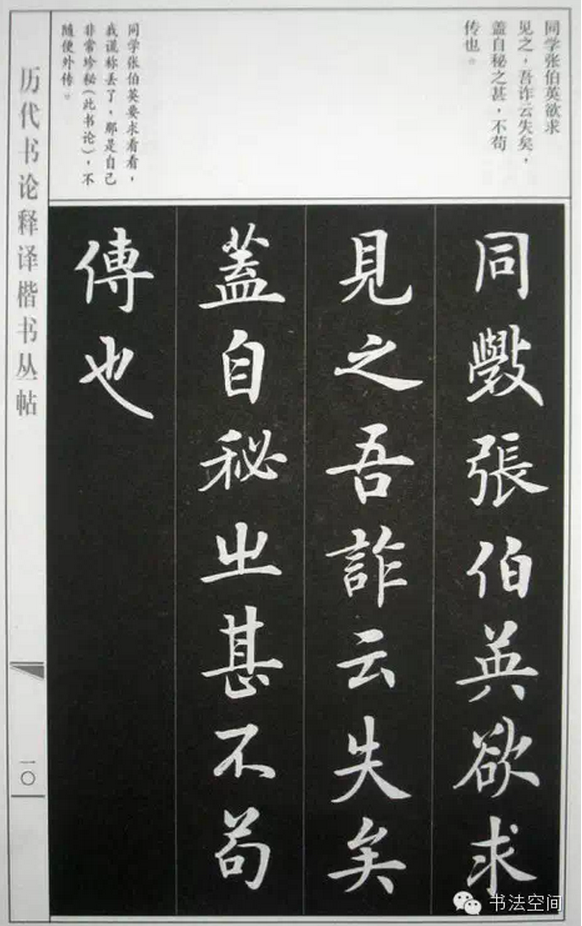 同学张伯英欲求
见之，吾诈云失矣，
盖自秘之甚，不苟
传也。
同学张伯英要求看看，
我谎称丢了，那是自己
非常珍秘（此书论），不
随便外传。
同斆張伯英欲求
見之吾詐云失矣
蓋自秘㞢甚不苟
傳也
历代书论释译楷书丛帖
一〇
书法空间